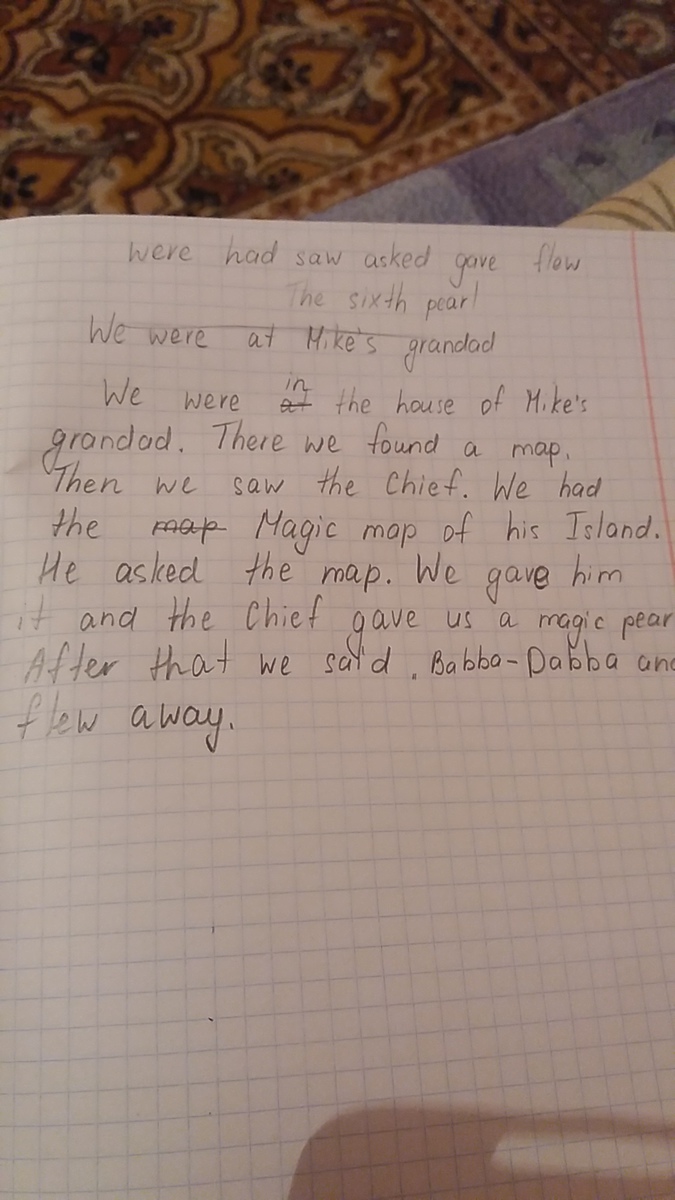 were had saw asked gave flow
The sixth pearl
We were at Mike's grandad
We were in the house of Mike's
grandad. There we found a map.
Then we saw the Chief. We had
the map Magic map of his Island.
He asked the map. We gave him
it and the Chief gave us a magic pear
After that we said. Babba-Dabba and
flew away.